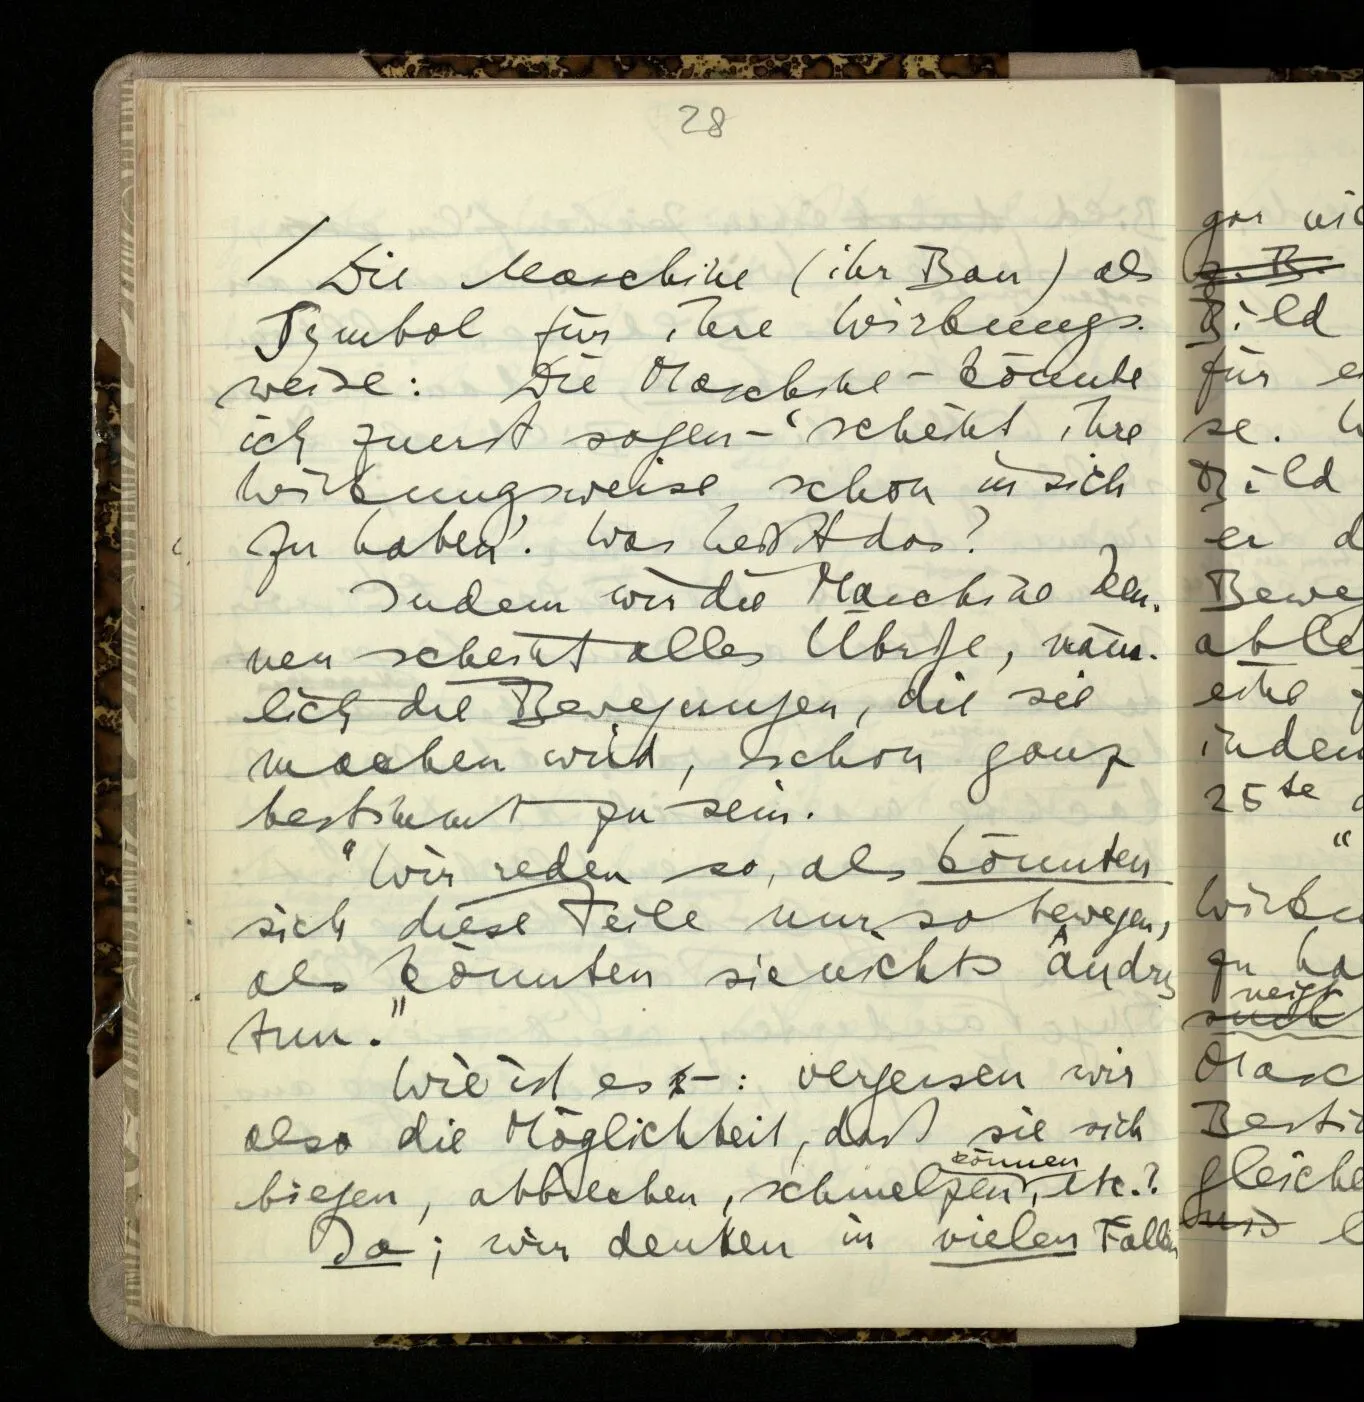 28
/ Die Maschine (ihr Bau) als
Symbol für ihre Wirkungs-
weise: Die Maschine – könnte
ich zuerst sagen – ‘scheint ihre
Wirkungsweise schon in sich
zu haben’. Was heißt das?
Indem wir die Maschine ken-
nen scheint alles Übrige, näm-
lich die Bewegungen, die sie
machen wird, schon ganz
bestimmt zu sein.
“Wir reden so, als könnten
sich diese Teile nur so bewegen,
als könnten sie nichts Andres
tun.”
Wie ist es –: vergessen wir
also die Möglichkeit, daß sie sich
biegen, abbrechen, schmelzen können, etc.?
Ja; wir denken in vielen Fällen
gar
z. B.
Bild
für
se.
Bild
er
indem
25ste
“
zu
neigt
such
und